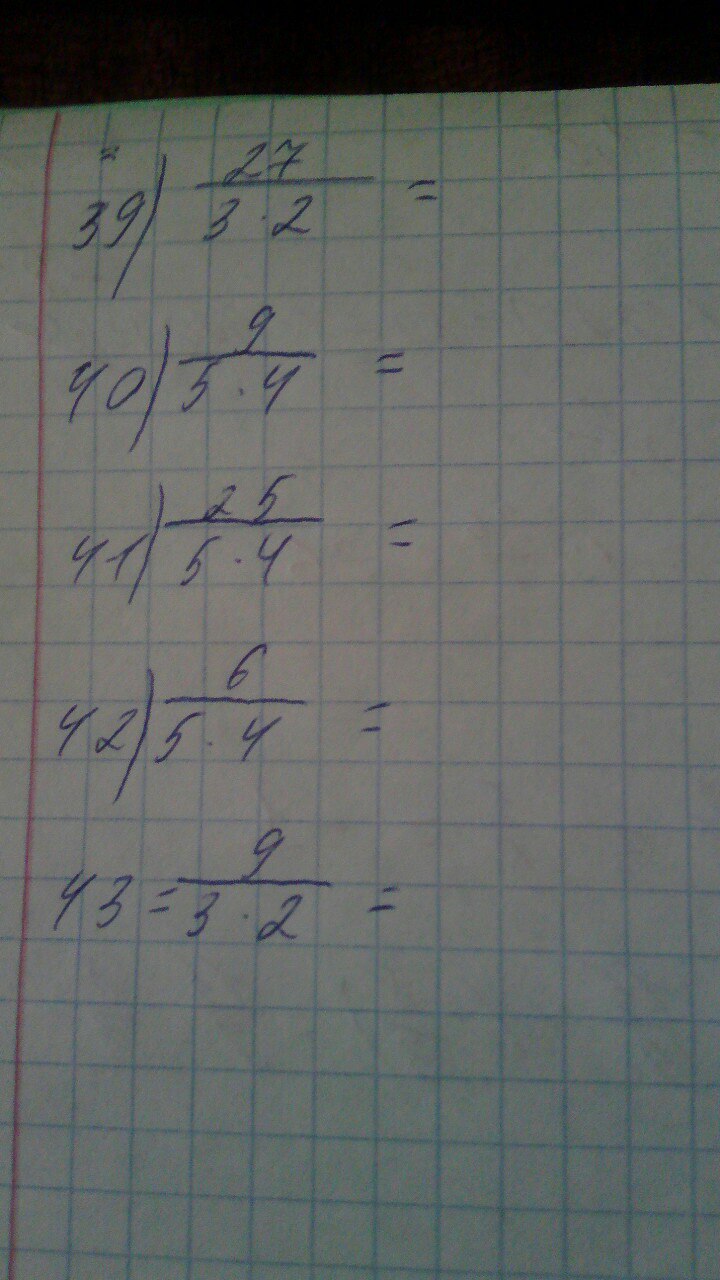 39) 27 / 3·2 =
40) 9 / 5·4 =
41) 25 / 5·4 =
42) 6 / 5·4 =
43 = 9 / 3·2 =